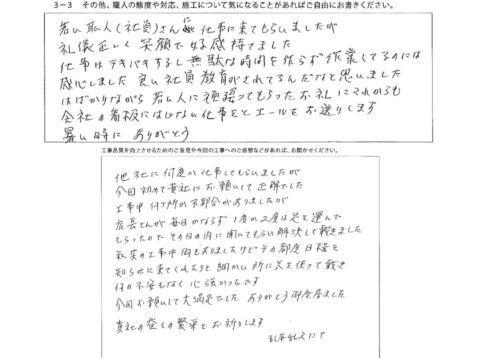 3－3　その他、職人の態度や対応、施工について気になることがあれば自由にお書きください。
若い職人（社員）さんに仕事に来てもらいましたが
礼儀正しく笑顔で好感持てました
仕事はテキパキするし無駄な時間を作らず作業してるのには
感心しました 良い社員教育がされてるんだなと思いました
はばかりながら若い人に頑張ってもらったお礼にこれからも
会社の看板にはじない仕事をとエールをお送りします
暑い時に ありがとう
工事品質を向上させるためのご意見や今回の工事へのご感想などがあれば、お聞かせください。
他社に何度か仕事してもらいましたが
今回初めて貴社にお願いして正解でした
工事中何ヶ所か不都合がありましたが
店長さんが毎日かならず1度か2度は足を運んで
もらったのでその日の内に聞いてもらい解決して戴きました
私共の工事中雨もありましたけどその都度日程を
知らせに来てくれたりと細かい所に気を使って戴き
何の不安もなく心強かったです
今回お願いして大満足でした ありがとう御座居ました
貴社の益々の繁栄をお祈りします
乱筆乱文にて